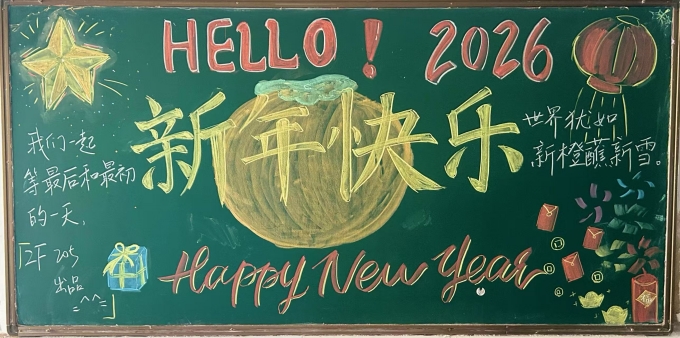 HELLO! 2026
新年快乐
我们一起
等最后和最初
的一天.
世界犹如
新橙蘸新雪。
Happy New Year
F2F 205
出品
=^^=